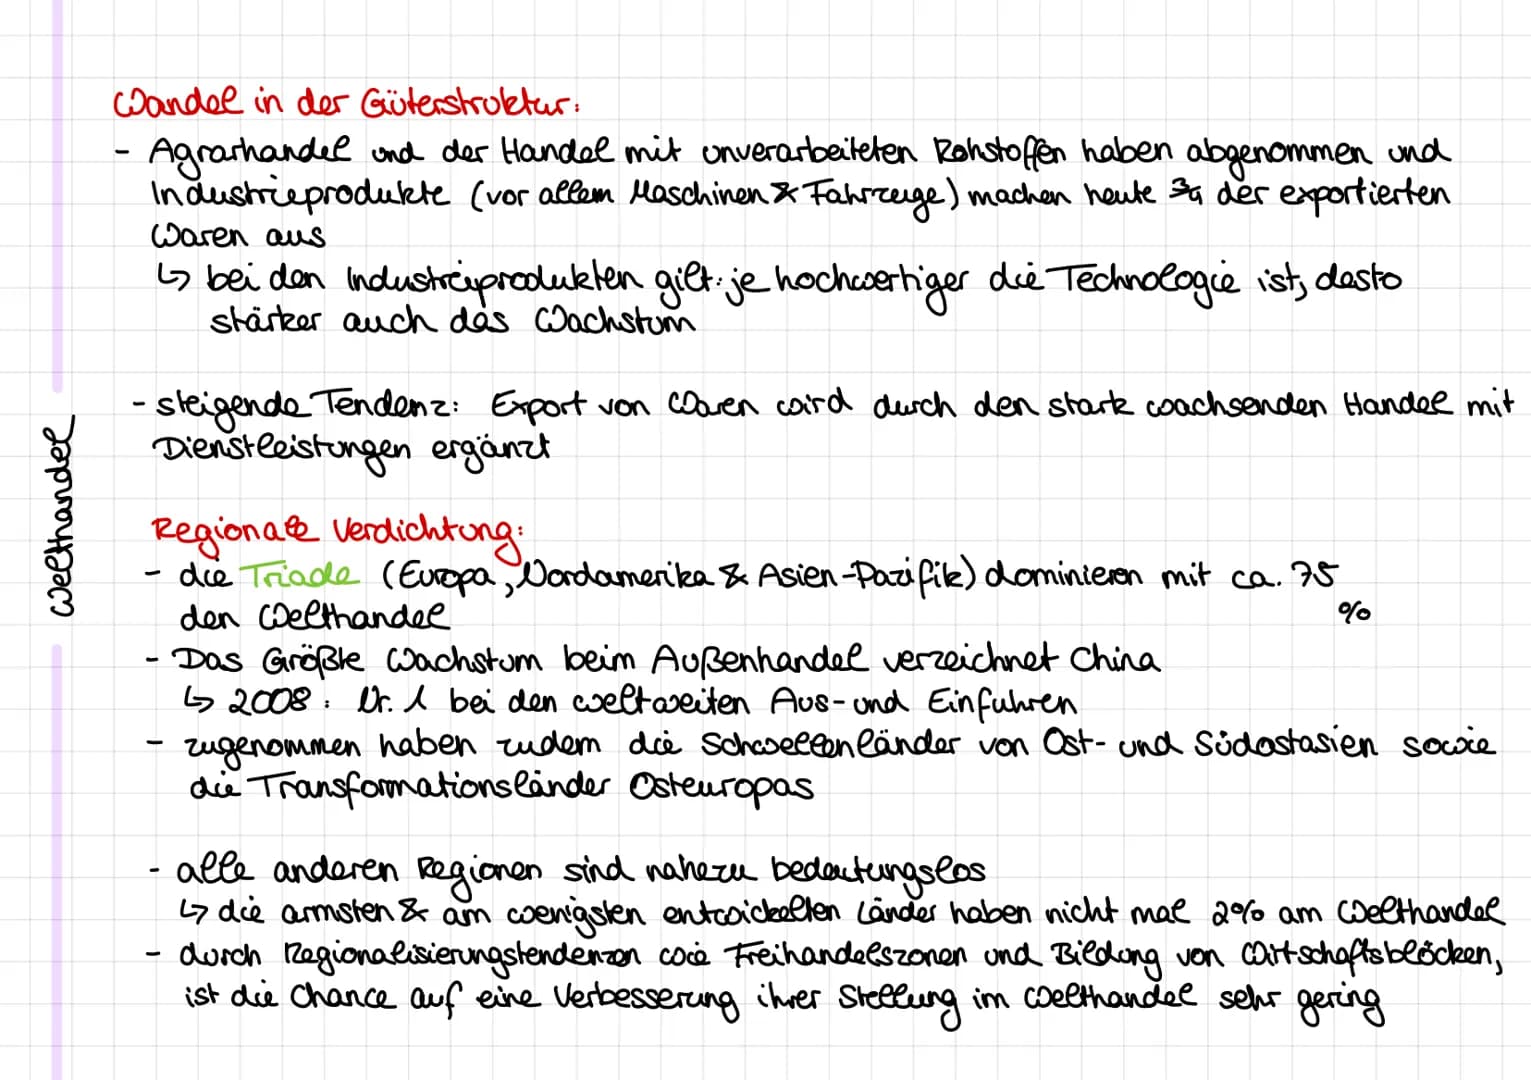 Wandel in der Güterstruktur:
- Agrarhandel und der Handel mit unverarbeiteten Rohstoffen haben abgenommen und
Industrieprodukte (vor allem Maschinen & Fahrzeuge) machen heute 3/4 der exportierten
Waren aus
↳ bei den Industrieprodukten gilt: je hochwertiger die Technologie ist, desto
stärker auch das Wachstum
- steigende Tendenz: Export von Waren wird durch den stark wachsenden Handel mit
Dienstleistungen ergänzt
Welthandel
Regionale Verdichtung:
- die Triade (Europa, Nordamerika & Asien-Pazifik) dominieren mit ca. 75
%
den Welthandel
- Das Größte Wachstum beim Außenhandel verzeichnet China
↳ 2008: Nr. 1 bei den weltweiten Aus- und Einfuhren
- zugenommen haben zudem die Schwellenländer von Ost- und Südostasien sowie
die Transformationsländer Osteuropas
- alle anderen Regionen sind nahezu bedeutungslos
↳ die armsten & am wenigsten entwickelten Länder haben nicht mal 2% am Welthandel
- durch Regionalisierungstendenzen wie Freihandelszonen und Bildung von Wirtschaftsblöcken,
ist die Chance auf eine Verbesserung ihrer Stellung im Welthandel sehr gering